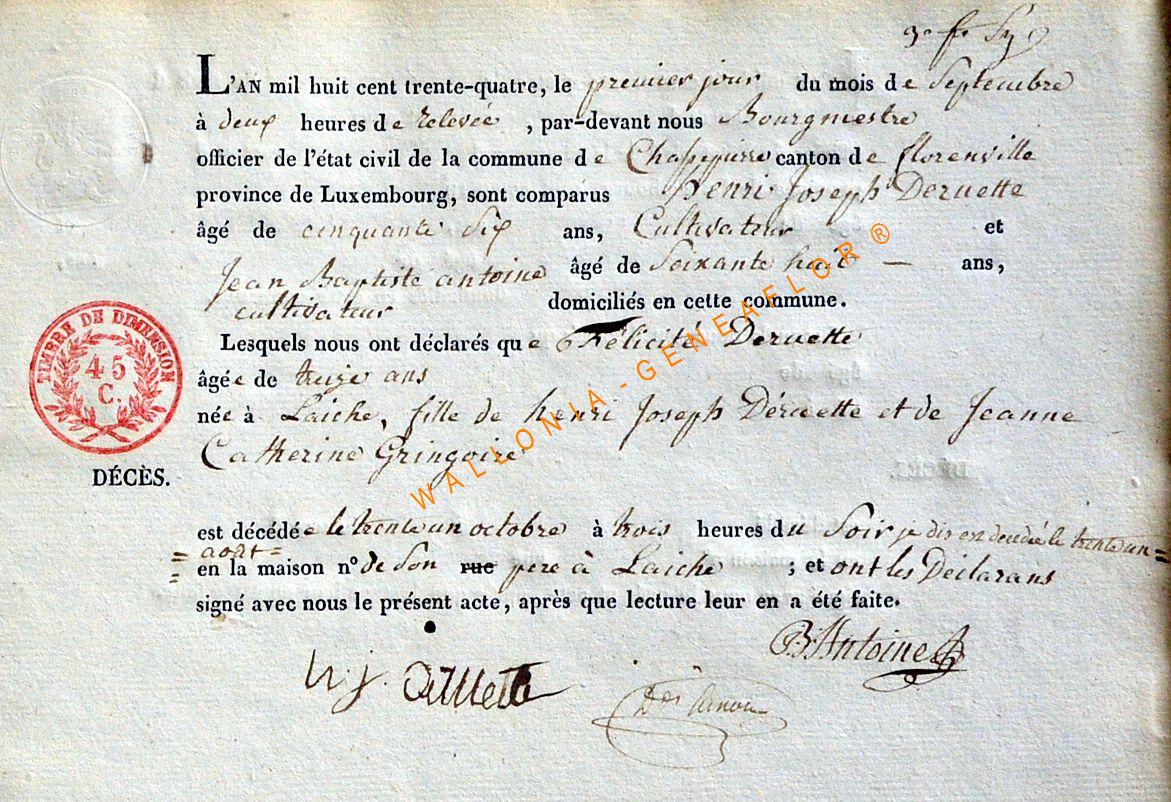 L'AN mil huit cent trente-quatre, le premier jour du mois de Septembre
à deux heures de relevée , par-devant nous Bourgmestre
officier de l'état civil de la commune de Chassepierre canton de florenville
province de Luxembourg, sont comparus Henri Joseph Deruette
âgé de cinquante Six ans, Cultivateur et
Jean Baptiste antoine âgé de Soixante huit — ans,
cultivateur domiciliés en cette commune.
Lesquels nous ont déclarés que Félicité Deruette
âgée de treize ans
née à Laiche, fille de henri Joseph Déruette et de Jeanne
Catherine Gringoire
DÉCÈS.
est décédée le trente un octobre à trois heures du Soir je dis en decedé le trente un =
= aout =
en la maison n° de Son rue pere à Laiche ; et ont les Déclarans
signé avec nous le présent acte, après que lecture leur en a été faite.
B Antoine
h j.
TIMBRE DE DIMENSION
45
C.
WALLONIA - GENEAFLOR ®